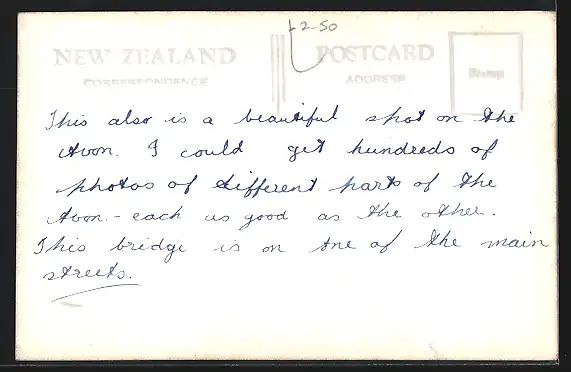 £2-50
NEW ZEALAND POSTCARD
CORRESPONDENCE ADDRESS
Stamp
This also is a beautiful spot on the
Avon. I could get hundreds of
photos of different parts of the
Avon - each as good as the other.
This bridge is on one of the main
streets.